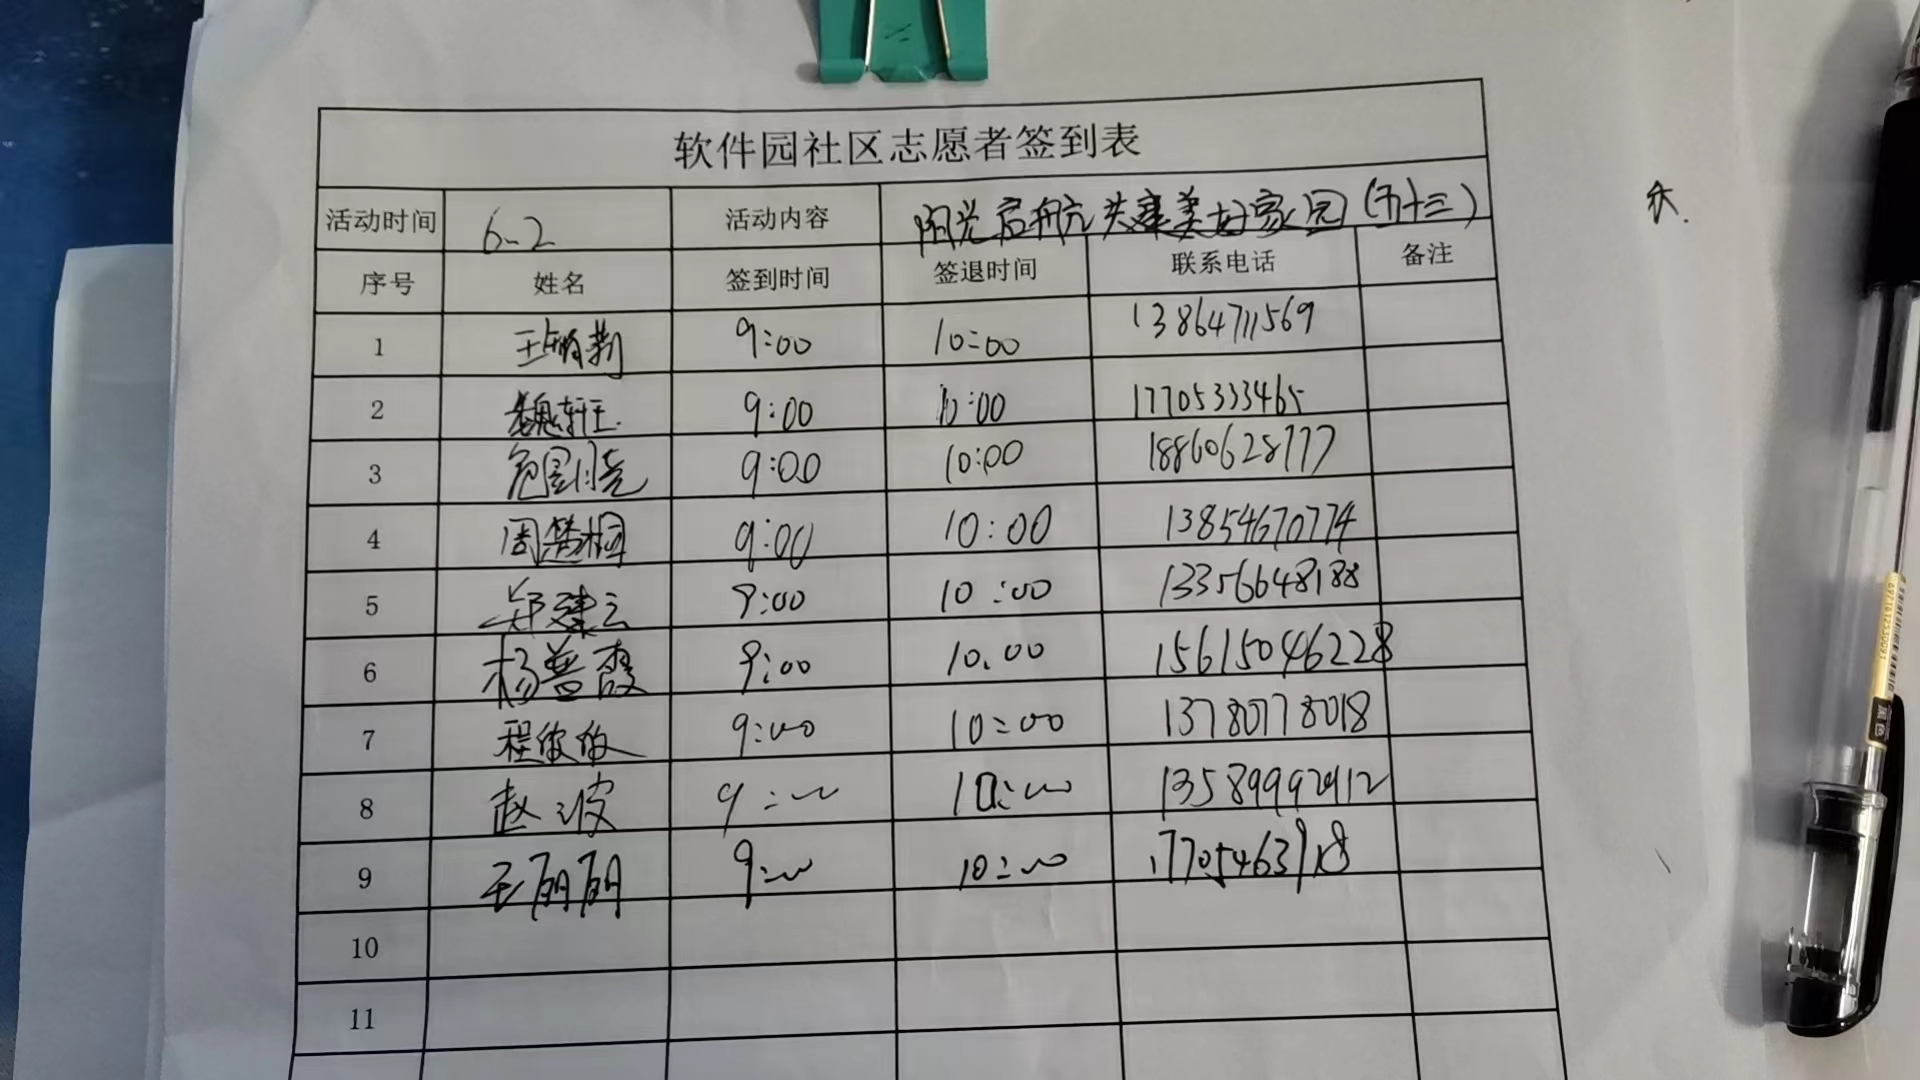 软件园社区志愿者签到表
活动时间 6-2 活动内容 阳光启航 共建美好家园（五十三）
序号 姓名 签到时间 签退时间 联系电话 备注
1 9:00 10:00 13864711569
2 魏轩玉 9:00 10:00 17705333465
3 9:00 10:00 18860628777
4 周梦桐 9:00 10:00 13854670774
5 郑建云 9:00 10:00 13356648188
6 杨普霞 9:00 10.00 15615046228
7 程依依 9:00 10:00 13780778018
8 赵波 9:00 10:00 13589992912
9 王丽丽 9:00 10:00
10
11